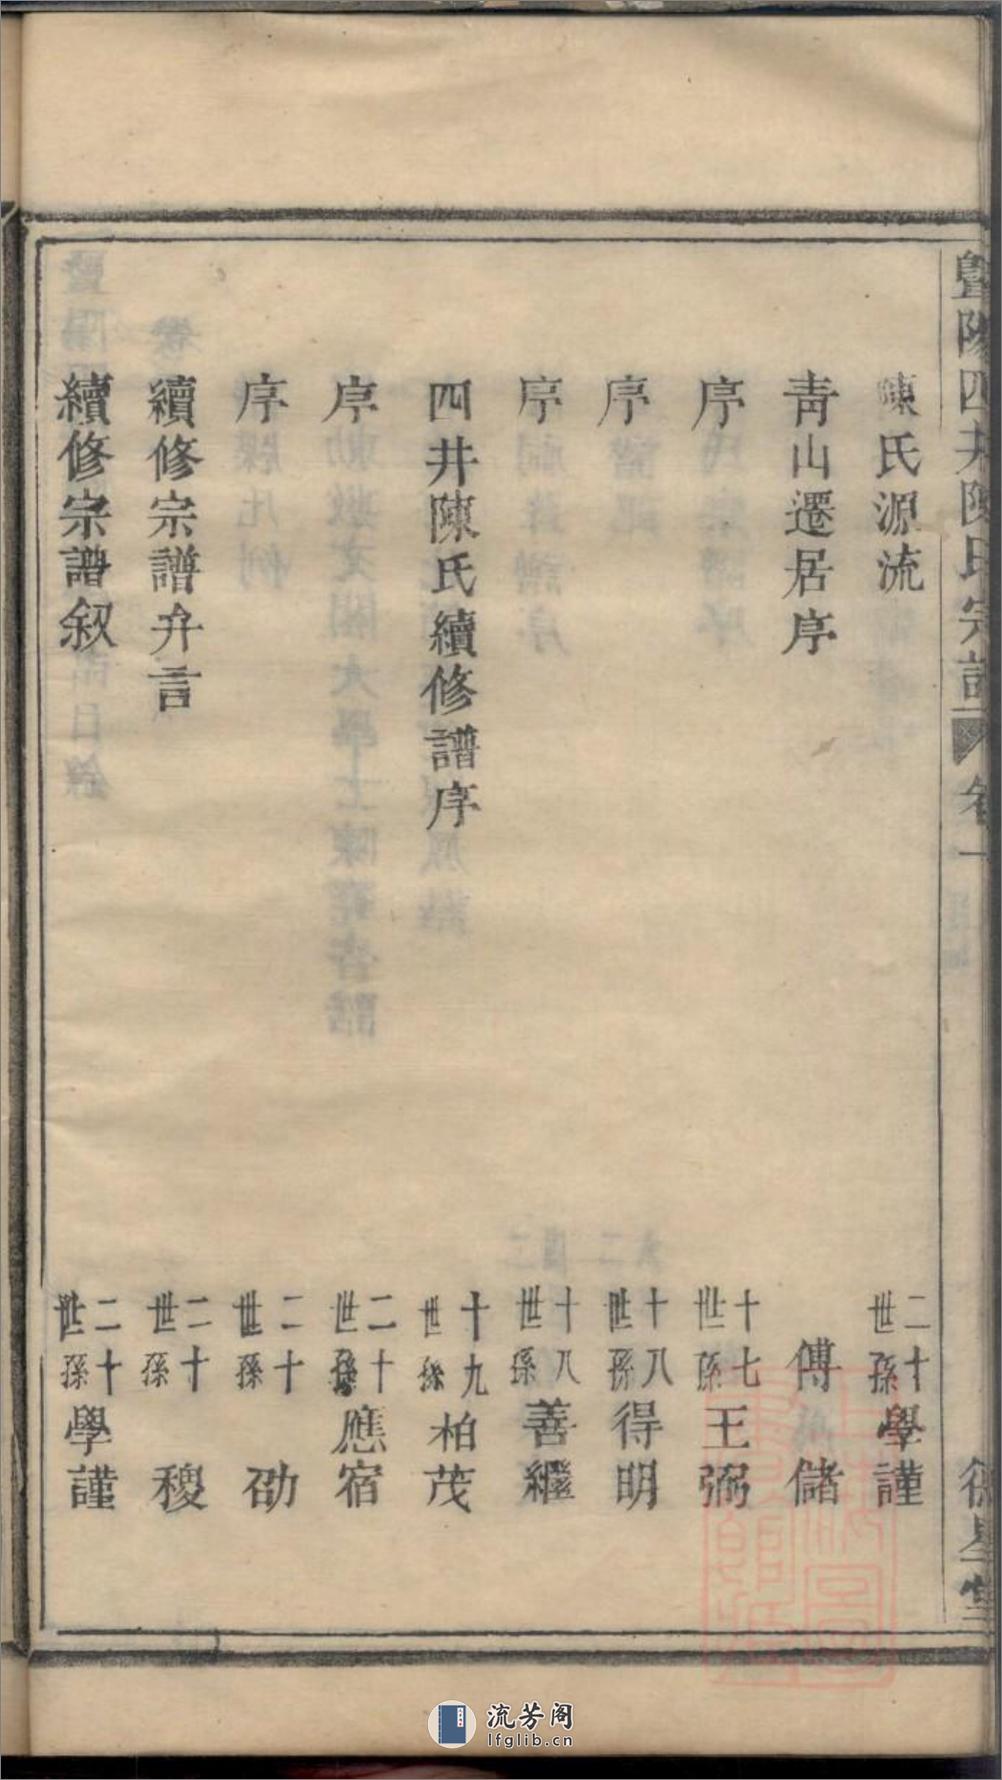 暨陽四井陳氏宗譜 卷一 德星堂
陳氏源流 二十世孫學謹
青山遷居序 傅儲
序 十七世孫王弼
序 十八世孫得明
序 十八世孫善繼
四井陳氏續修譜序 十九世孫柏茂
序 二十世孫應宿
序 二十世孫劭
續修宗譜弁言 二十世孫稷
續修宗譜叙 二十世孫學謹
流芳阁
lfglib.cn